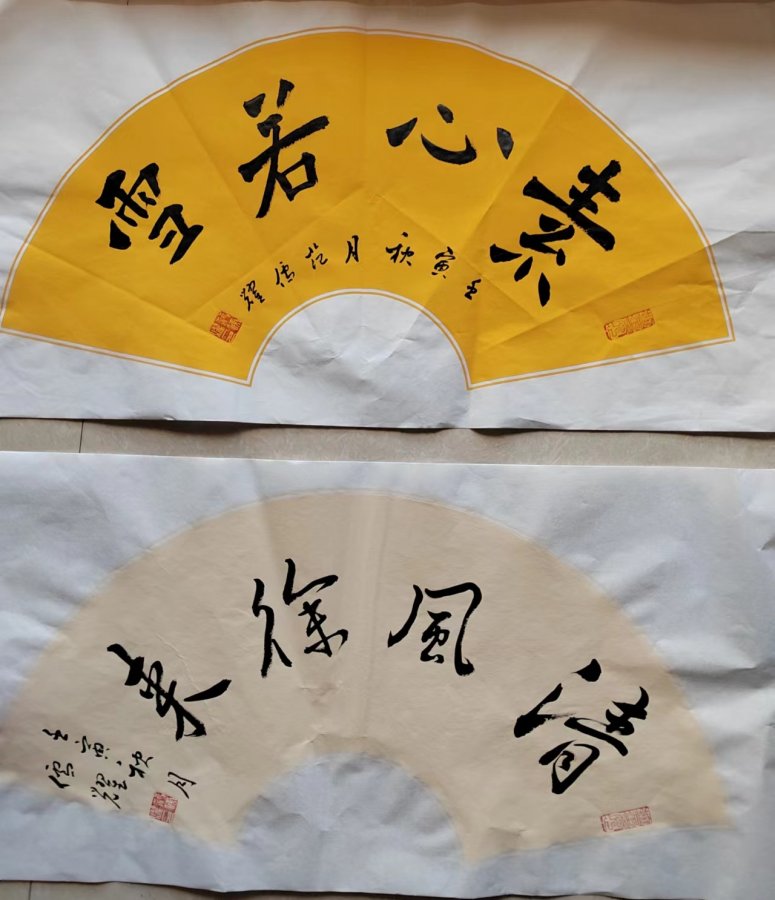 素心若雪
壬寅秋月范儒耀
清风徐来
壬寅秋月
儒耀